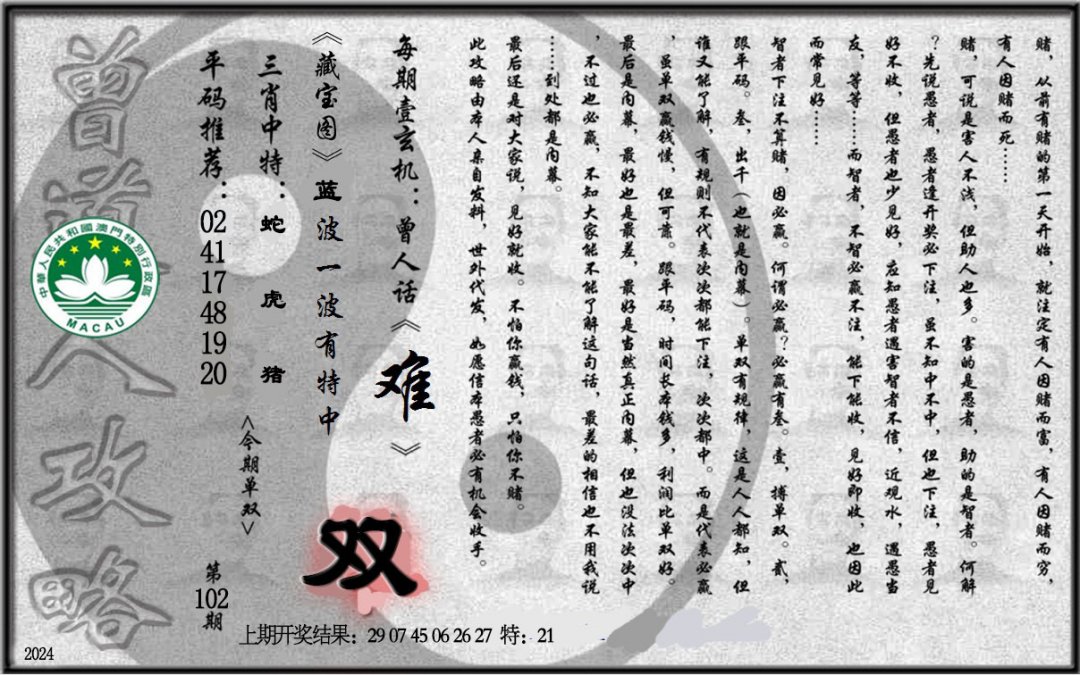 赌，从前有赌的第一天开始，就注定有人因赌而富，有人因赌而穷，
有人因赌而死……
赌，可说是害人不浅，但助人也多。害的是愚者，助的是智者。何解
？先说愚者，愚者逢开奖必下注，虽不知中不中，但也下注，愚者见
好不收，但愚者也少见好，应知愚者遇害智者不信，近观水，遇愚当
友，等等……而智者，不智必赢不注，能下能收，见好即收，也因此
而常见好……
智者下注不算赌，因必赢。何谓必赢？必赢有叁。壹，搏单双。贰，
跟平码。叁，出千（也就是内幕）。单双有规律，这是人人都知，但
谁又能了解，有规则不代表次次都能下注，次次都中。而是代表必赢
，虽单双赢钱慢，但可靠。跟平码，时间长本钱多，利润比单双好。
最后是内幕，最好也是最差，最好是当然真正内幕，但也没法次次中
，不过也必赢，不知大家能不能了解这句话，最差的相信也不用我说
……到处都是内幕。
最后还是对大家说，见好就收。不怕你赢钱，只怕你不赌。
此攻略由本人亲自发料，世外代发，如愿信本愚者必有机会收手。
每期壹玄机：曾人话《难》
《藏宝图》蓝波一波有特中
双
三肖中特：蛇 虎 猪
<今期单双>
平码推荐：02 41 17 48 19 20
第102期
曾道人攻略
中華人民共和國澳門特別行政區
MACAU
上期开奖结果：29 07 45 06 26 27 特：21
2024